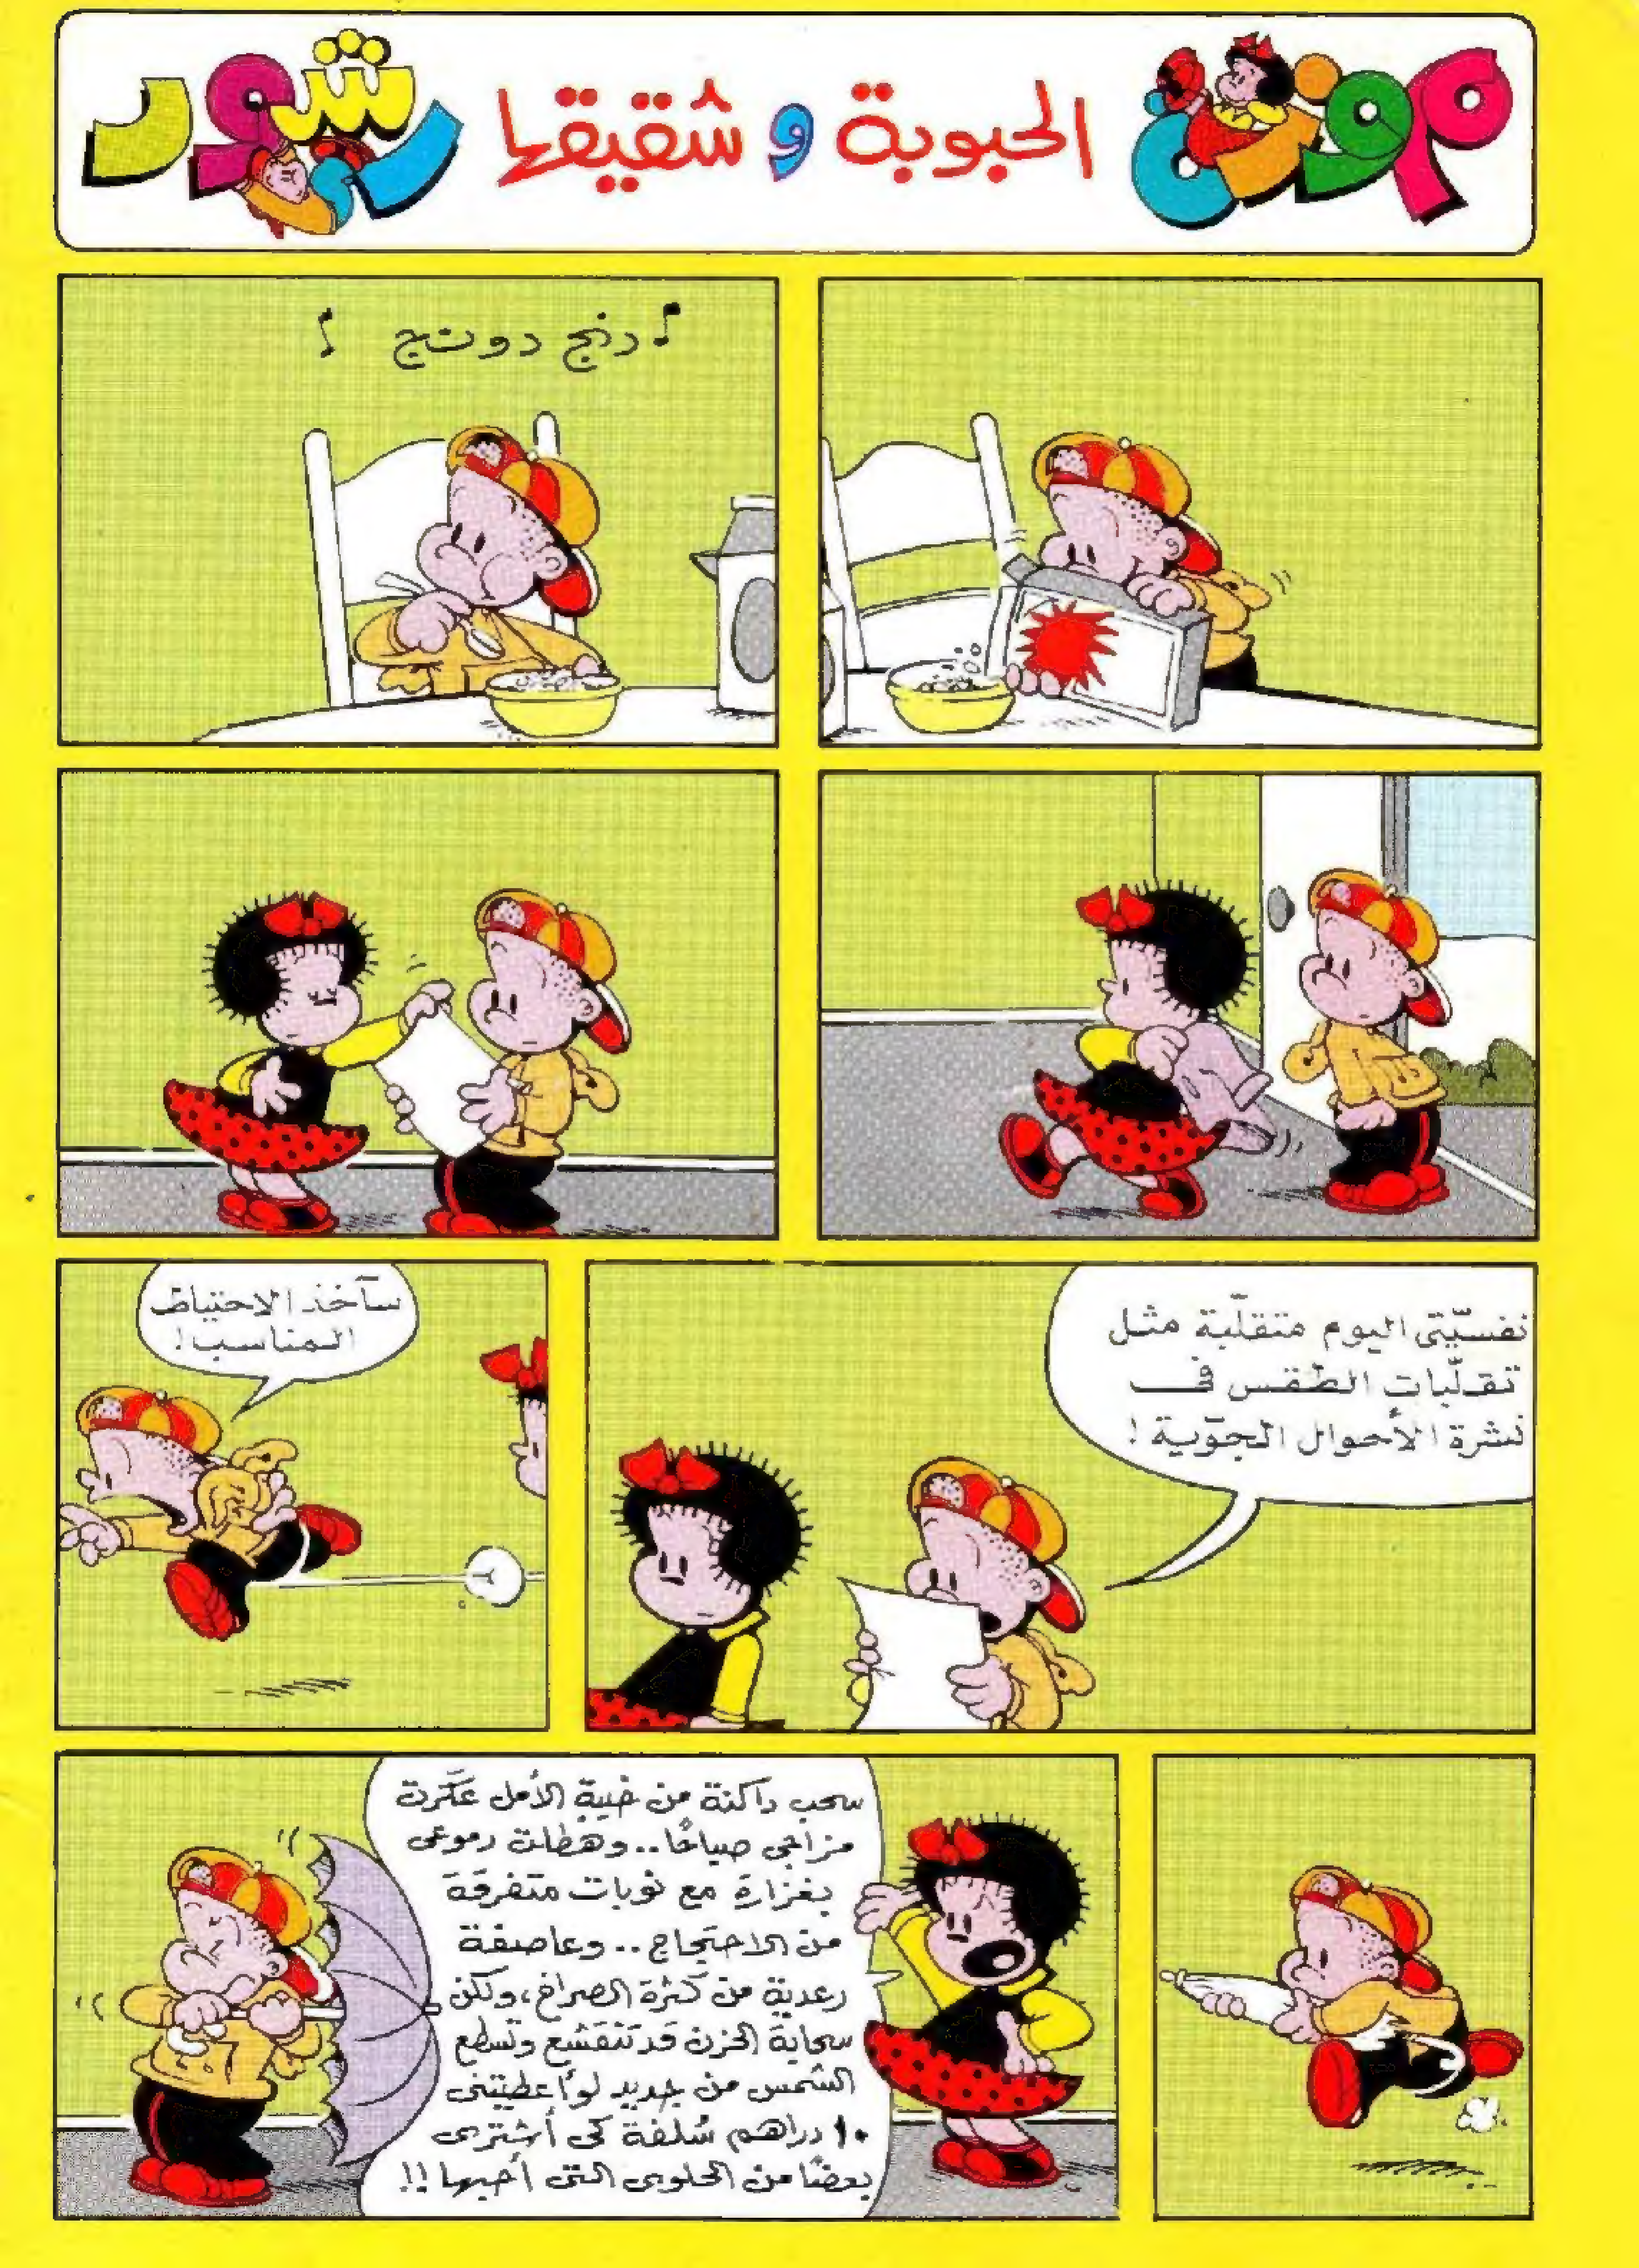 موزة الحبوبة و شقيقها رشود
دنج دونج
نفسيّتى اليوم متقلّبة مثل
تقلّبات الطقس فى
نشرة الأحوال الجوّية !
سآخذ الاحتياط
المناسب !
سحب داكنة من خيبة الأمل عكّرت
مزاجي صباحًا .. وهطلت دموعى
بغزارة مع نوبات متفرقة
من الاحتجاج .. وعاصفة
رعدية من كثرة الصراخ ، ولكن
سحابة الحزن قد تنقشع وتسطع
الشمس من جديد لو أعطيتنى
١٠ دراهم سُلفة كى أشترى
بعضًا من الحلوى التى أحبها !!